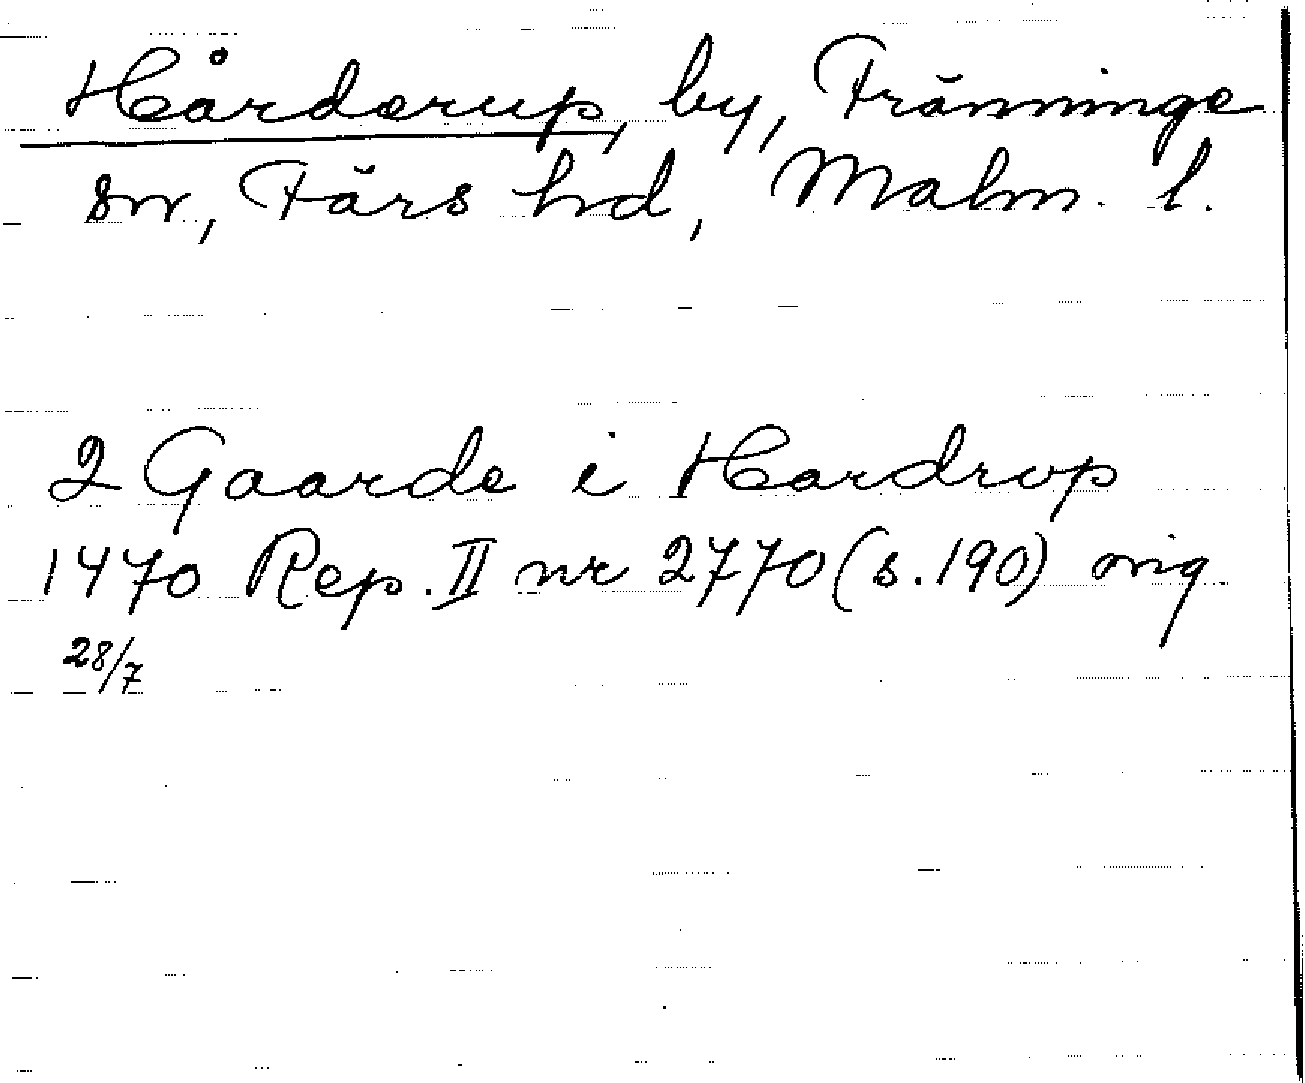 Hårderup, by, Fränninge
sn, Färs hd, Malm. l.
2 Gaarde i Hardrop
1470 Rep. II nr 2770 (s. 190) orig
28/7